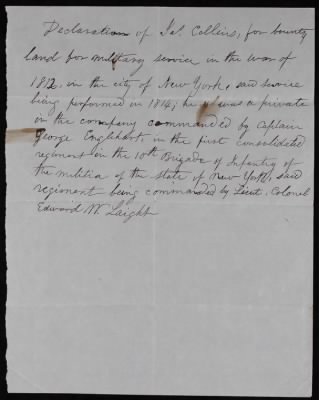 Declaration of Jas. Collins, for bounty
land for military service in the war of
1812, in the city of New York, said service
being performed in 1814; he was a private
in the company commanded by Captain
George Englehart, in the first consolidated
regiment in the 10th Brigade of Infantry of
the militia of the state of New York, said
regiment being commanded by Lieut. Colonel
Edward W. Laight